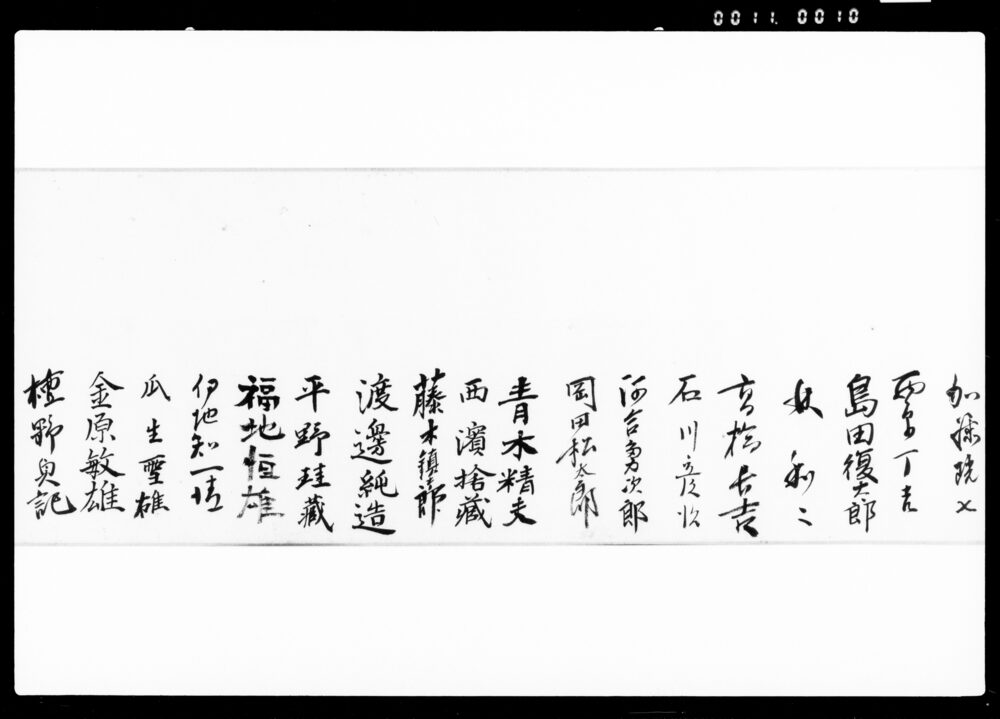 0011. 0010
加藤
丁吉
島田復太郎
高橋長吉
石川
河合勇次郎
岡田松太郎
青木精夫
西濱捨藏
藤木鎮
渡邊純造
平野珪藏
福地恒雄
伊地知一清
瓜生聖雄
金原敏雄
樫野與記